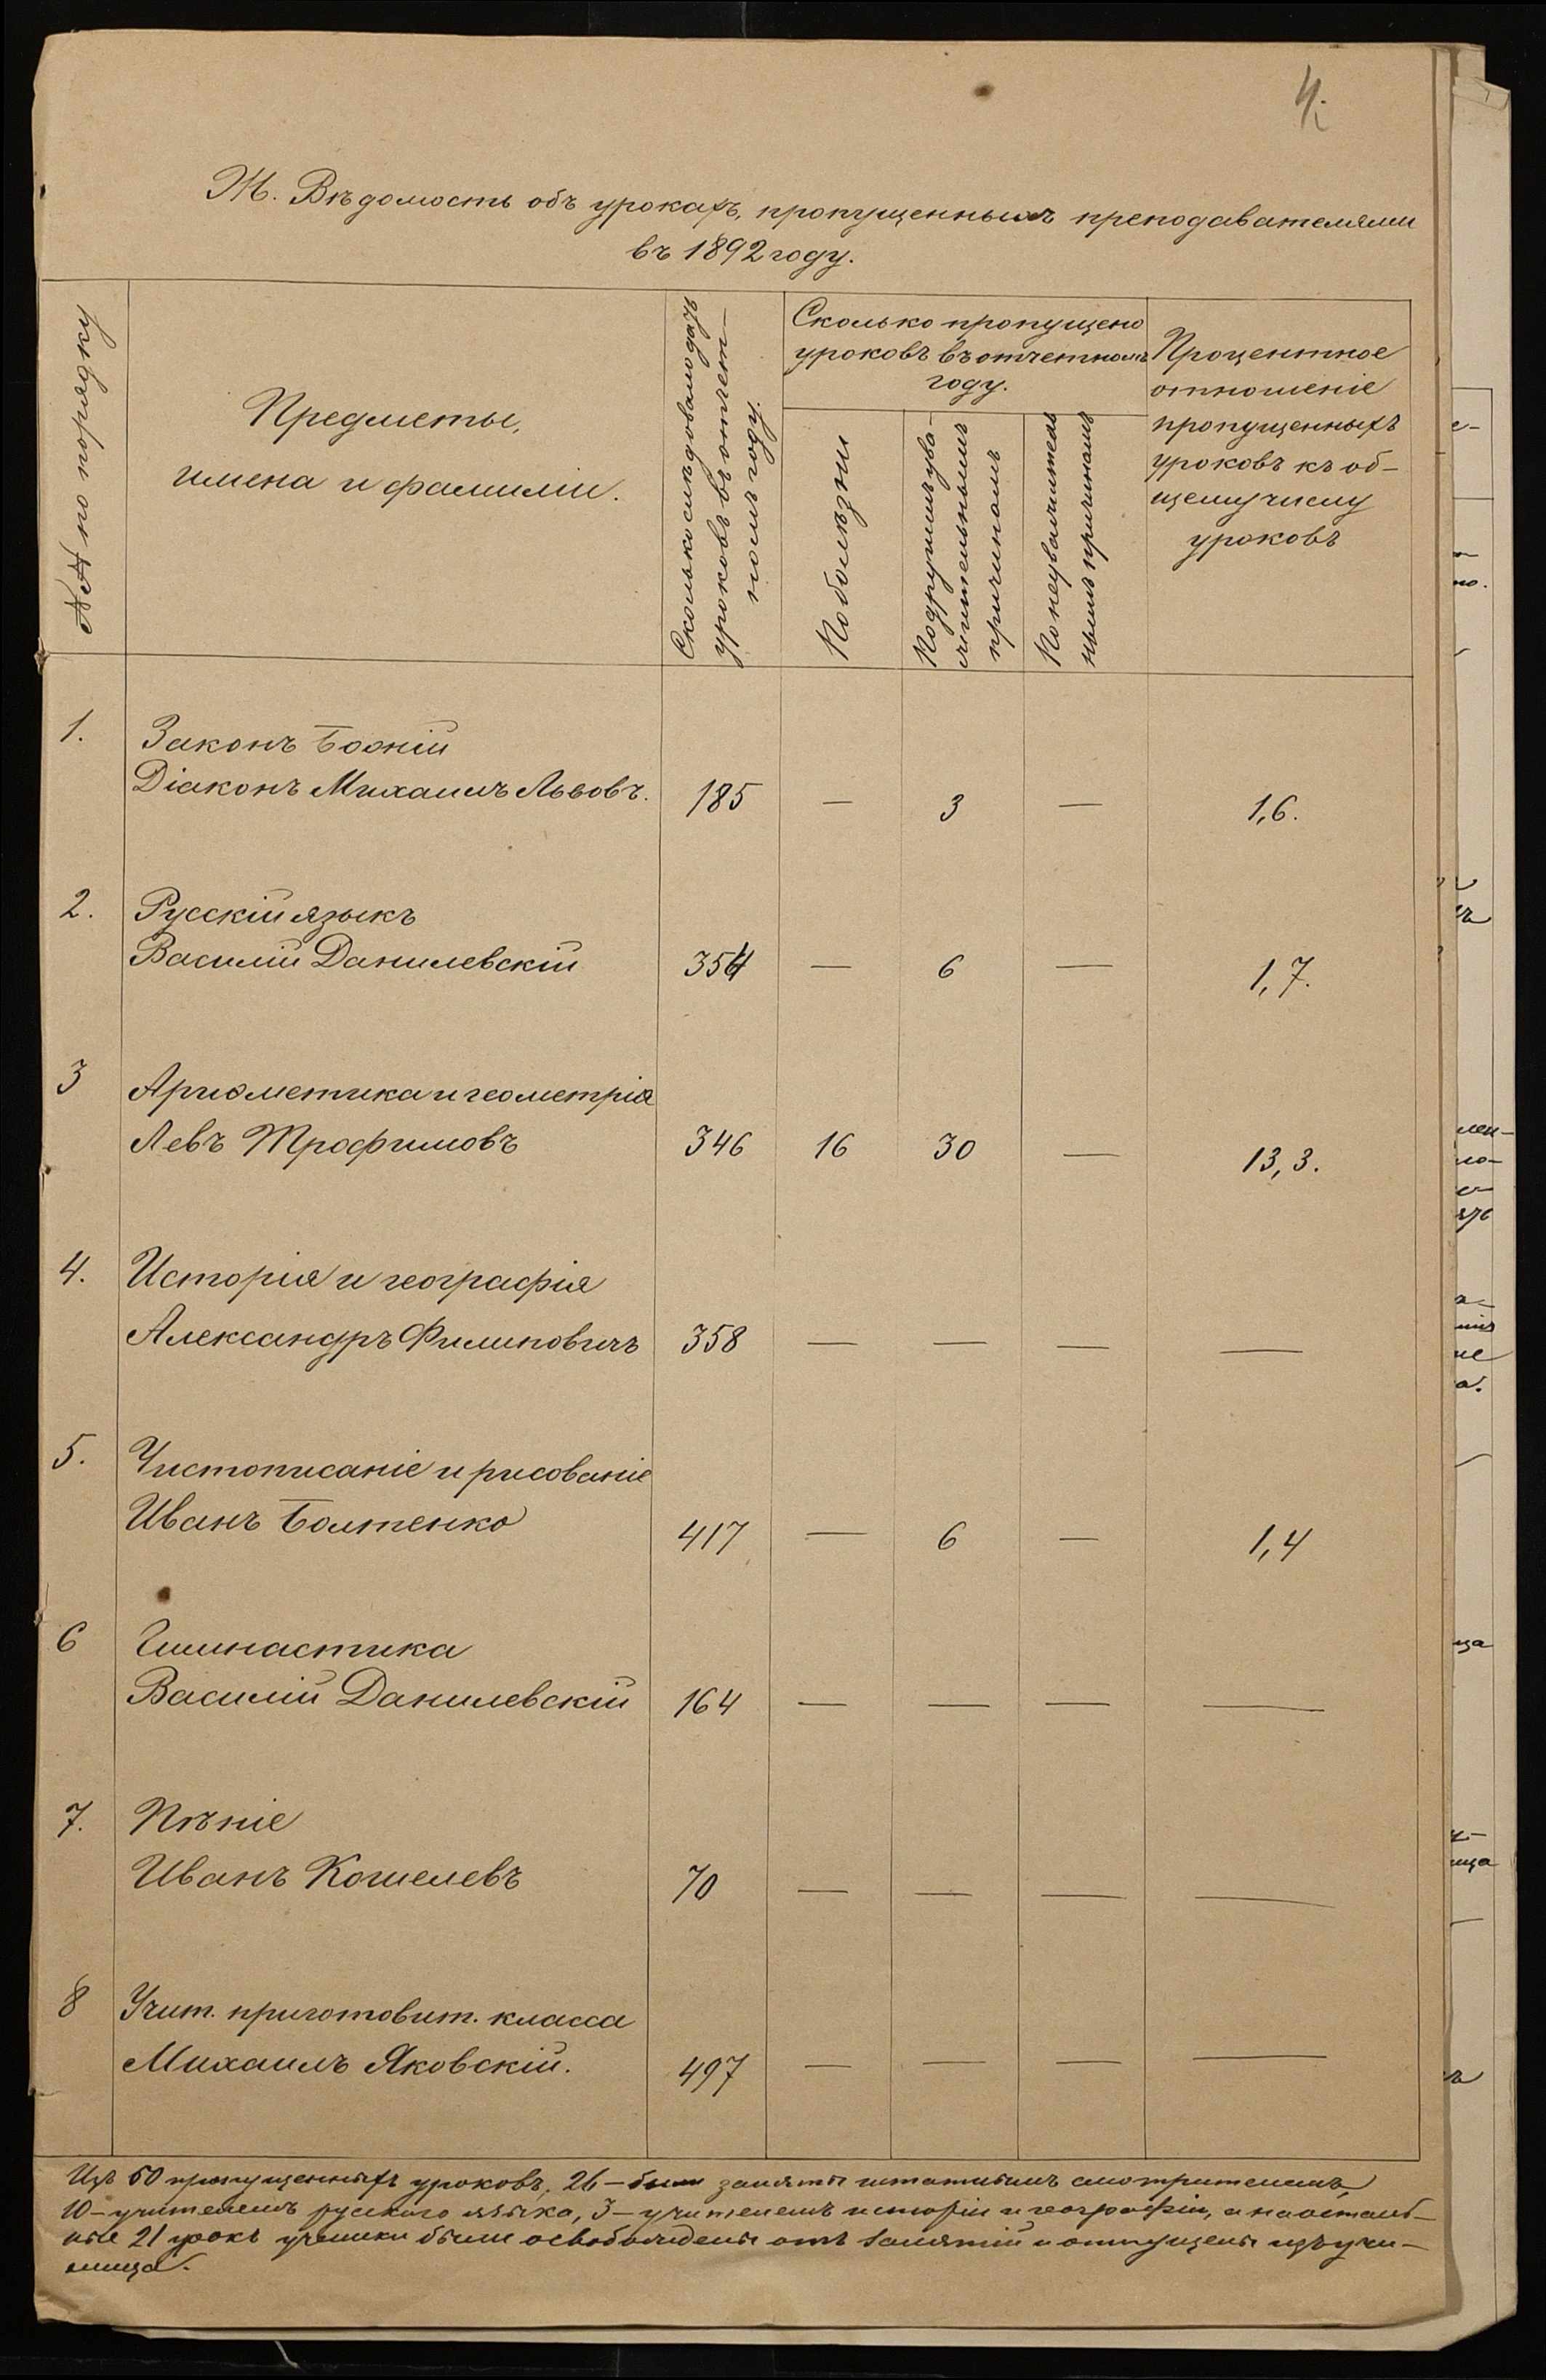 4.
Ж. Вѣдомость объ урокахъ, пропущенныхъ преподавателями
въ 1892 году.
№№ по порядку
Предметы,
имена и фамиліи.
Сколько слѣдовало дать
уроковъ въ отчет-
номъ году.
Сколько пропущено
уроковъ въ отчетномъ
году.
По болѣзни
По другимъ ува-
жительнымъ
причинамъ
По неуважитель
нымъ причинамъ
Процентное
отношеніе
пропущенныхъ
уроковъ къ об-
щему числу
уроковъ
1. Законъ Божій
Діаконъ Михаилъ Львовъ. 185 — 3 — 1,6.
2. Русскій языкъ
Василій Данилевскій 354 — 6 — 1,7.
3 Ариѳметика и геометрія
Левъ Трофимовъ 346 16 30 — 13,3.
4. Исторія и географія
Александръ Филиповичъ 358 — — — —
5. Чистописаніе и рисованіе
Иванъ Болтенко 417 — 6 — 1,4
6 Гимнастика
Василій Данилевскій 164 — — — —
7. Пѣніе
Иванъ Кошелевъ 70 — — — —
8 Учит. приготовит. класса
Михаилъ Яковскій. 497 — — — —
Изъ 60 пропущенныхъ уроковъ, 26 – были заняты штатнымъ смотрителемъ,
10 – учителемъ русскаго языка, 3 – учителемъ исторіи и географіи, а на осталь-
ные 21 урокъ ученики были освобождены отъ занятій и отпущены изъ учи-
лища.